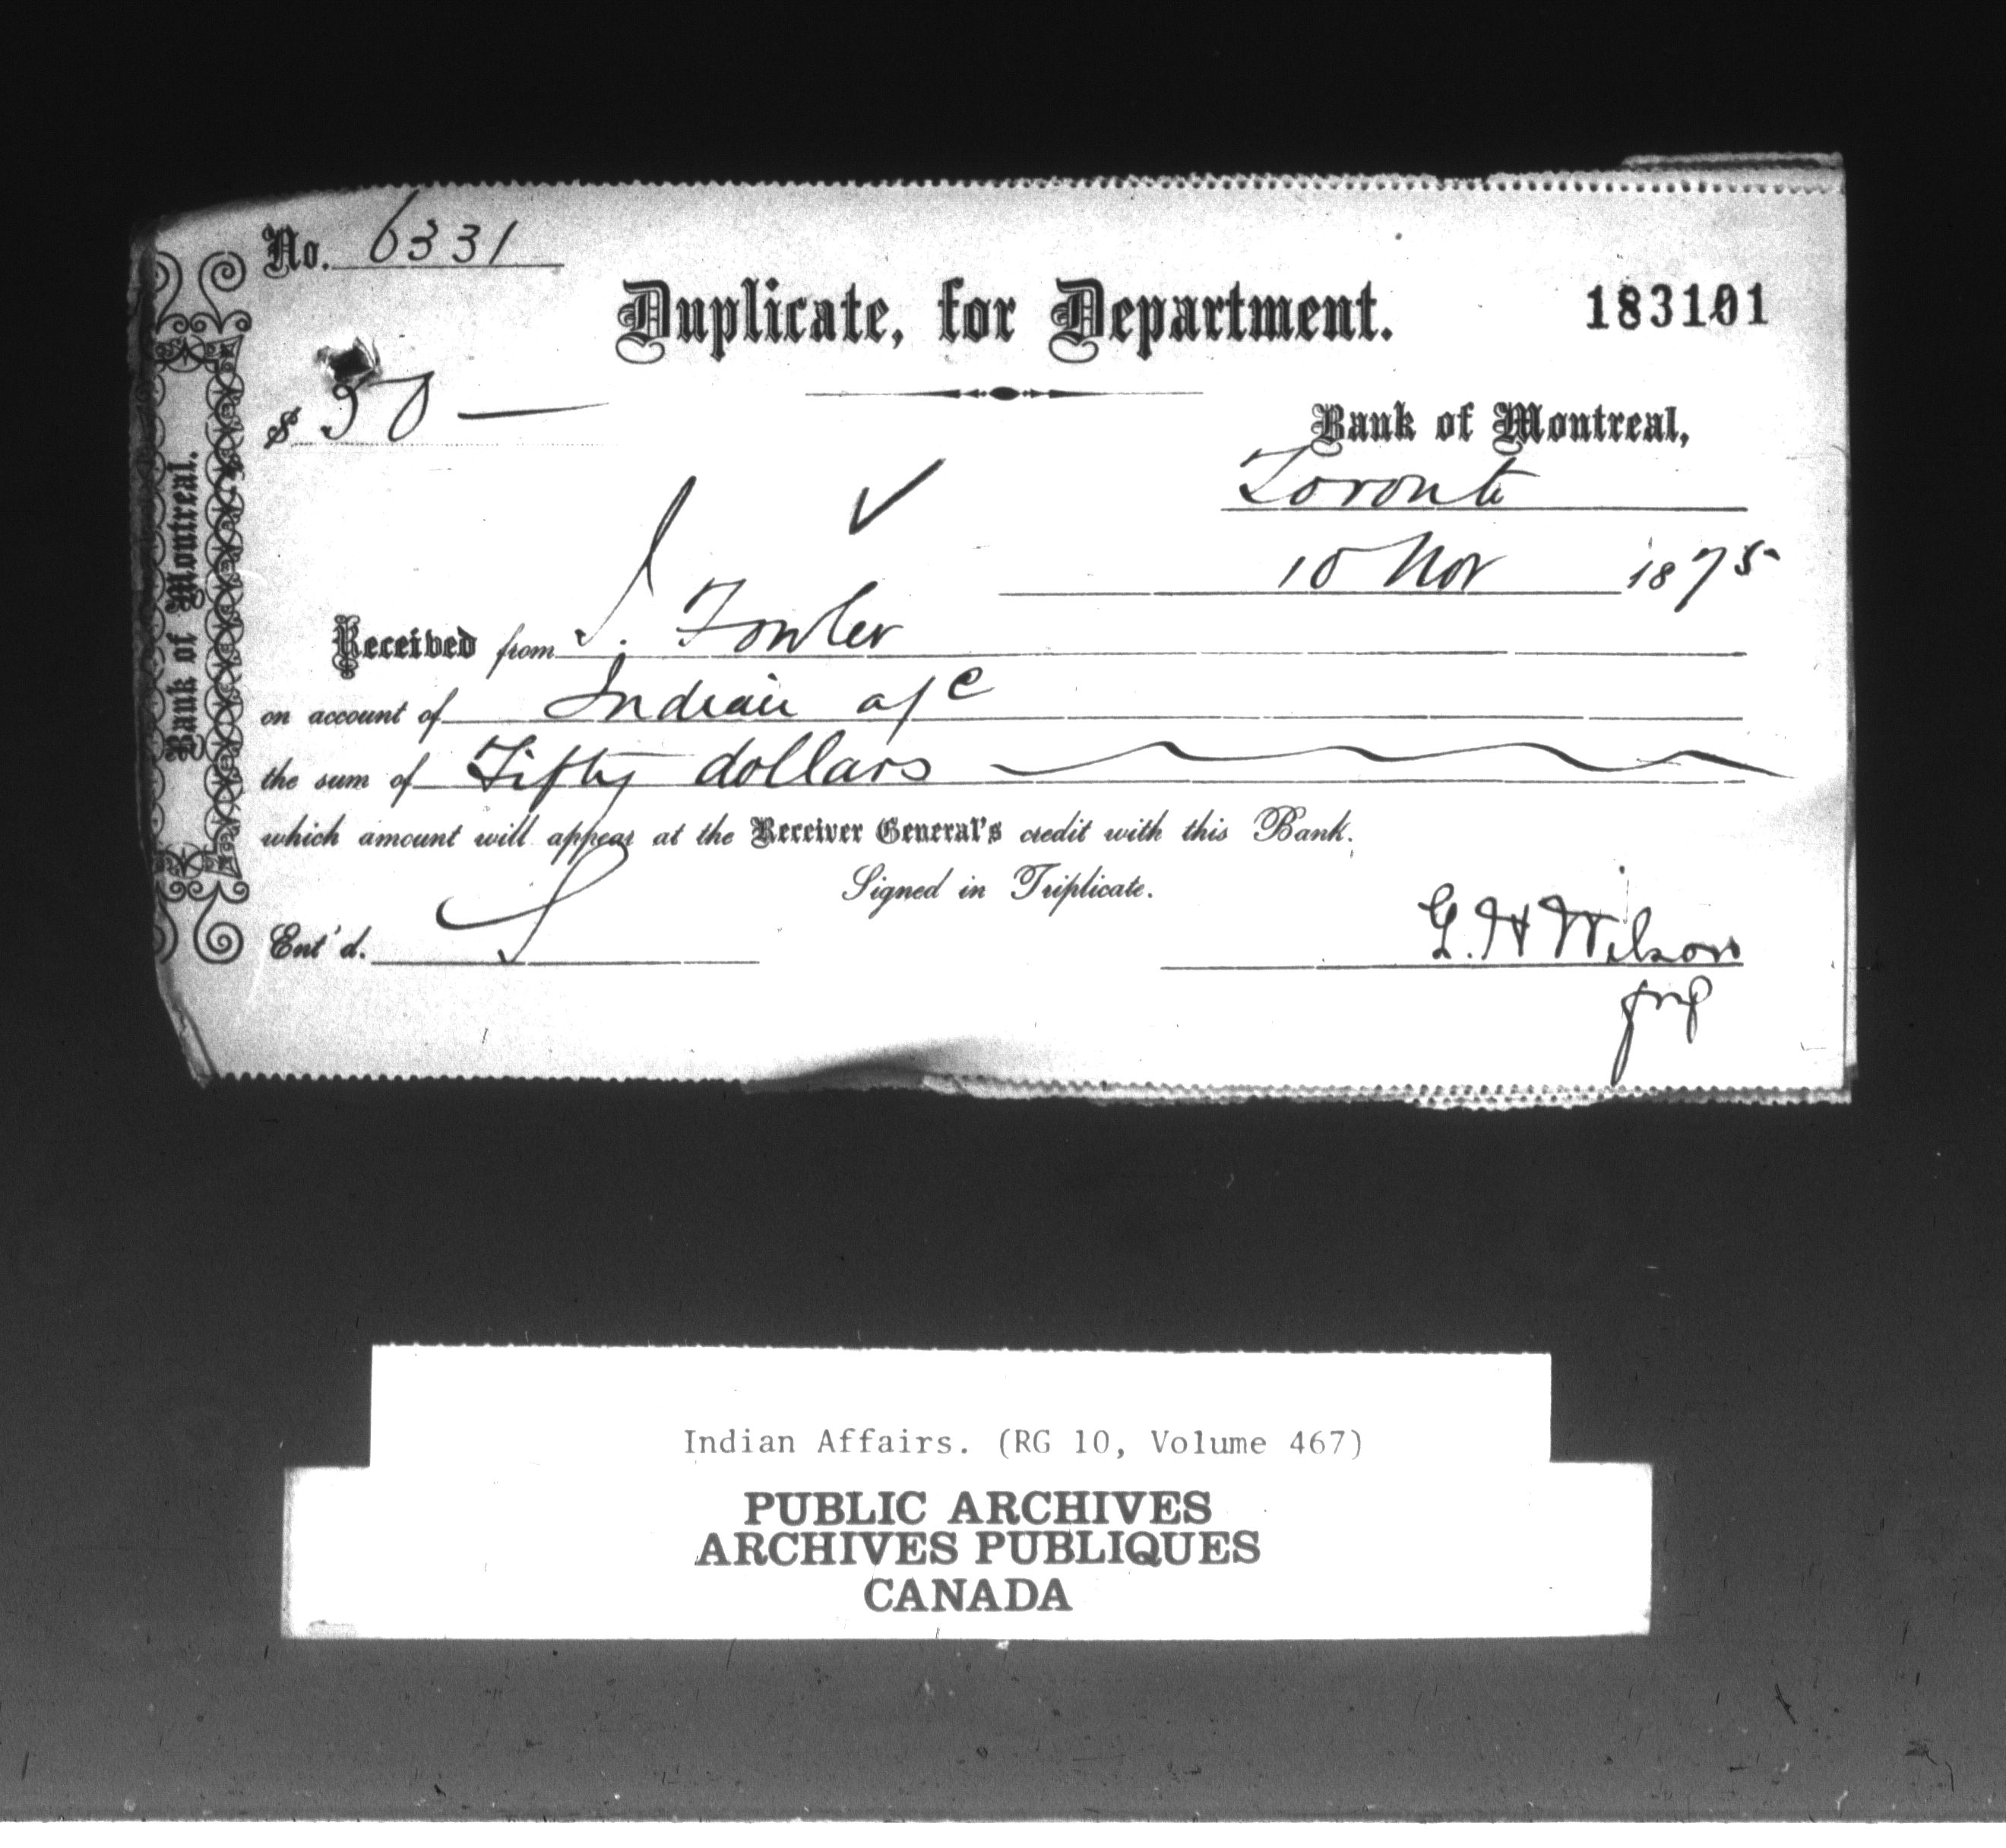 No. 6331
Duplicate, for Department.
183101
$ 50
Bank of Montreal,
Toronto
10 Nov 1875
Received from J. Fowler
on account of Indian a/c
the sum of Fifty dollars
which amount will appear at the Receiver General's credit with this Bank.
Signed in Triplicate.
Ent'd.
G. H Wilson
Bank of Montreal.
Indian Affairs. (RG 10, Volume 467)
PUBLIC ARCHIVES
ARCHIVES PUBLIQUES
CANADA